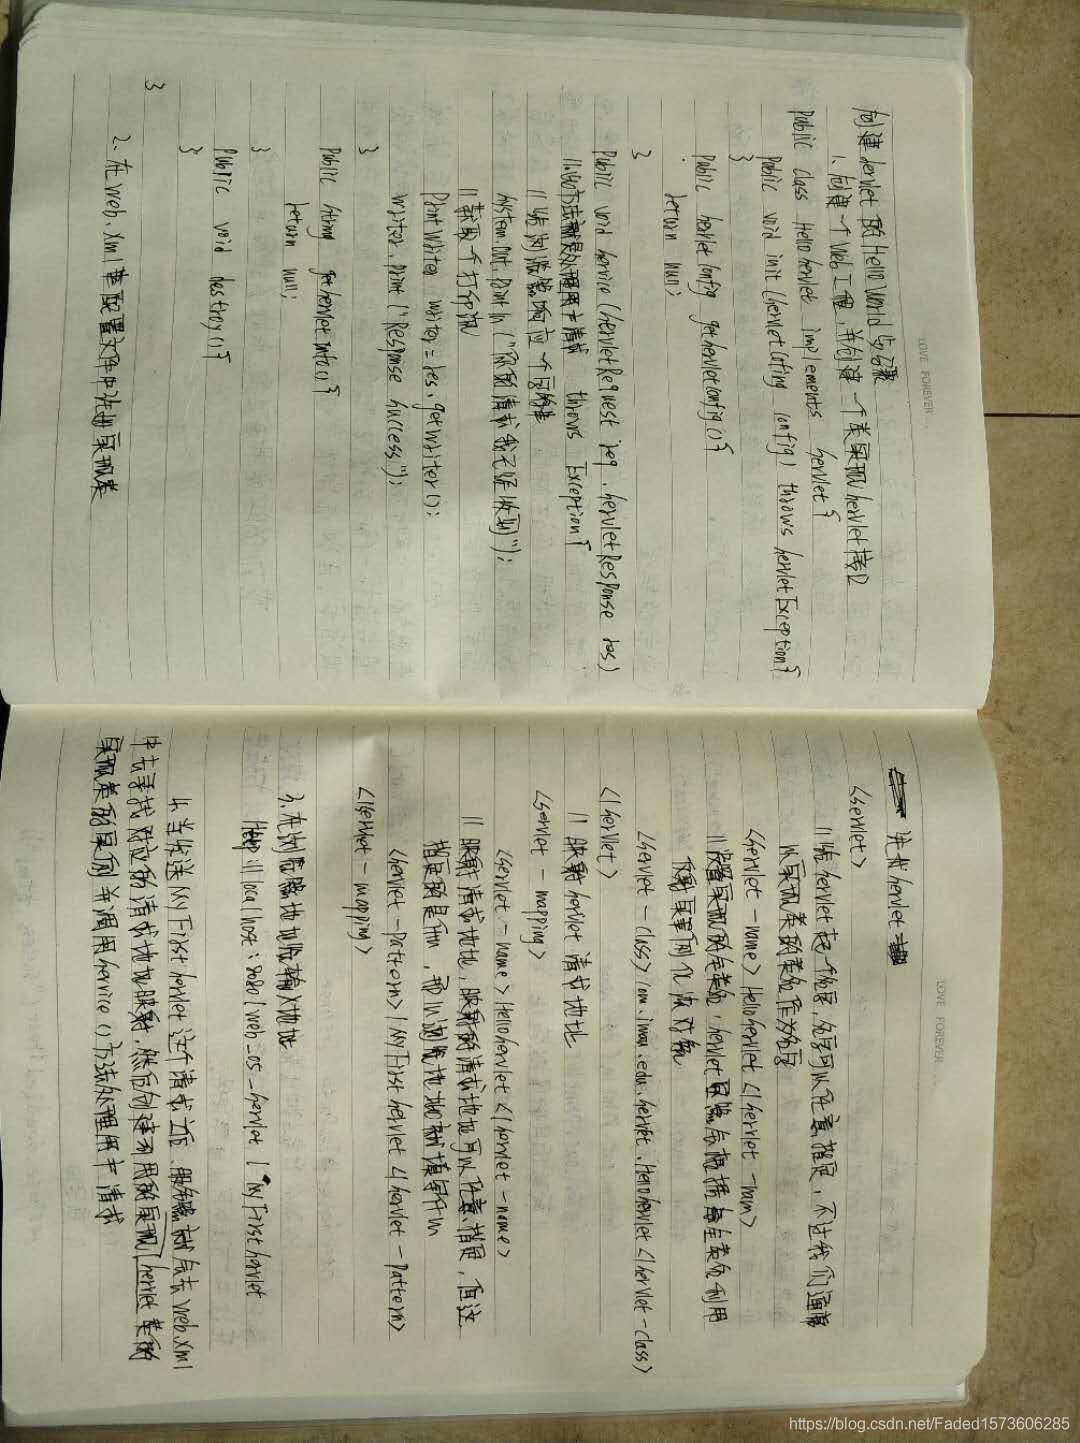 LOVE FOREVER
创建servlet的Hello World步骤
1.创建一个Web工程,并创建一个类实现servlet接口
public class Helloservlet implements servlet {
public void init (servletConfig config) throws servletException {
}
public servletConfig getservletConfig() {
return null;
}
public void service (servletRequest req, servletResponse res)
throws Exception {
//给浏览器响应一个
System.out.println ("你的请求我已经收到");
//获取一个打印流
PrintWriter writer = res.getWriter();
writer.print ("Response success");
}
public String getservletInfo() {
return null;
}
public void destroy() {
}
}
2.在web.xml 配置文件中注册实现类
LOVE FOREVER
servlet
<servlet>
//给servlet起个别名,别名可以任意指定,不过我们通常
以实现类的类名作为别名
<servlet-name>Helloservlet</servlet-nam>
//设置实现的全类名,servlet容器会根据全类名利用
反射来实例化该对象
<servlet-class>com.imau.edu.servlet.Helloservlet</servlet-class>
</servlet>
//映射servlet请求地址
<servlet-mapping>
<servlet-name>Helloservlet</servlet-name>
//映射请求地址,映射的请求地址可以任意指定,但这
指定的是什么,那么浏览地址就填写什么
<servlet-pattern>/MyFirstservlet</servlet-pattern>
</servlet-mapping>
3.在浏览器地址栏输入地址
Http://localhost:8080/web_05_servlet/MyFirstservlet
4.当发送MyFirstservlet这个请求之后,服务器就会去web.xml
中去寻找对应的请求地址映射,然后创建引用的实现servlet类的
实现类的实例并调用service()方法处理用户请求
https://blog.csdn.net/Faded1573606285